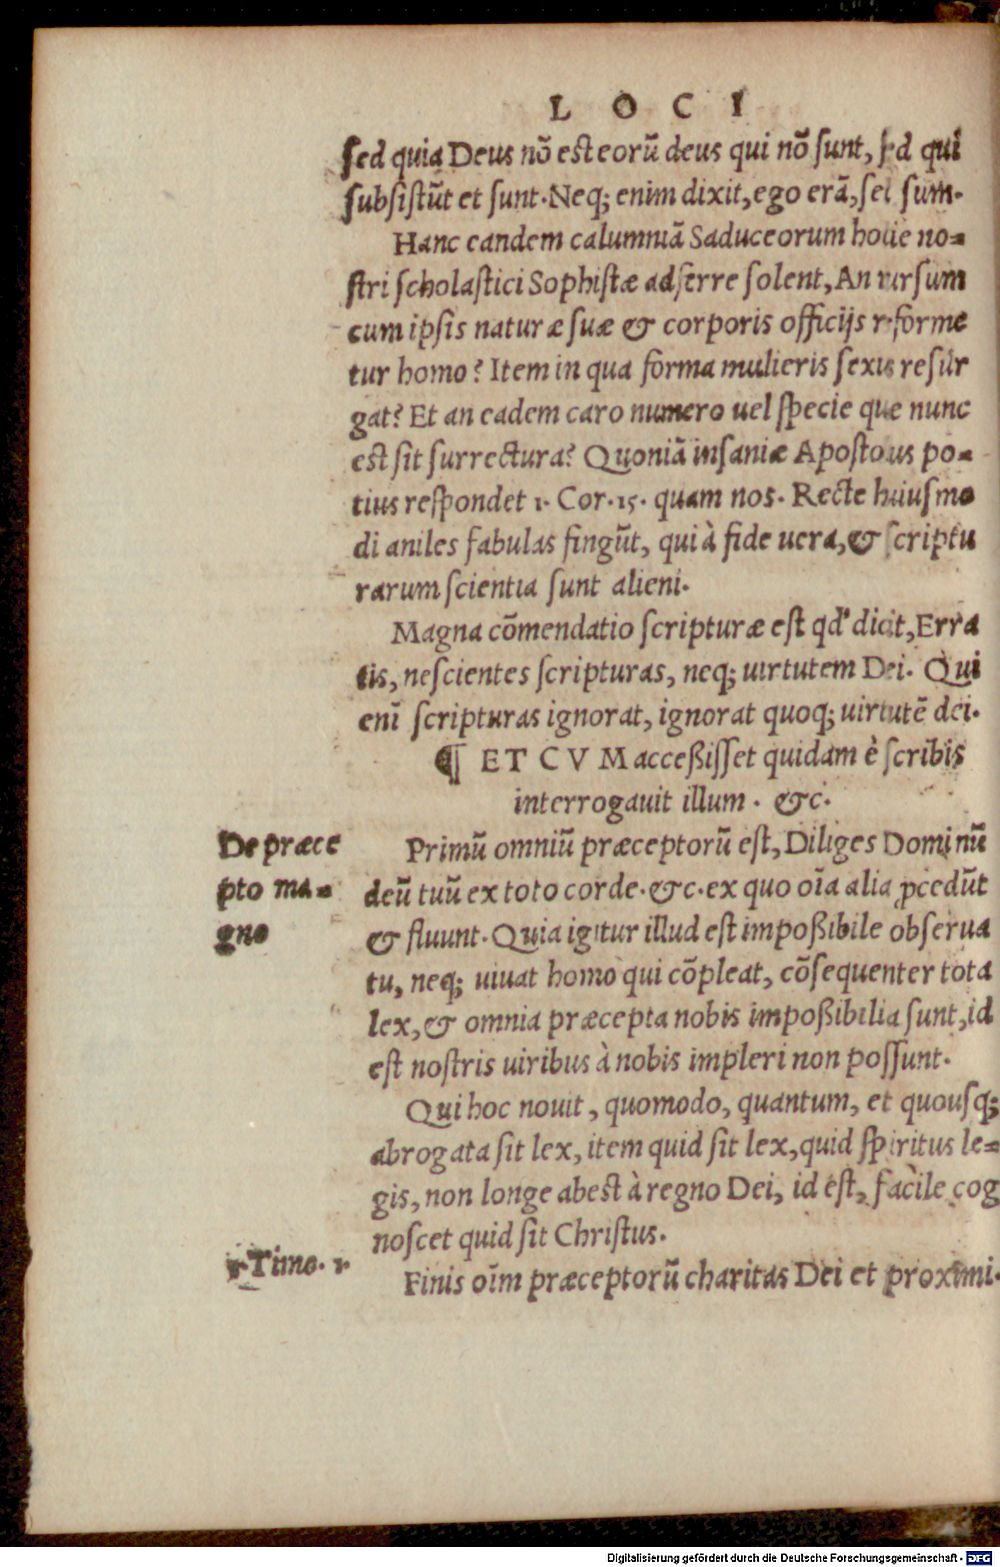 L O C I
ſed quia Deus nō est eorū deus qui nō ſunt, ſed qui
ſubſiſtūt et ſunt. Neq; enim dixit, ego erā, ſed ſum.
Hanc eandem calumniā Saduceorum hodie no-
ſtri ſcholaſtici Sophiſtæ adferre ſolent, An rurſum
cum ipſis naturæ ſuæ & corporis officijs reforme
tur homo? Item in qua forma mulieris ſexus reſur
gat? Et an eadem caro numero uel ſpecie que nunc
est ſit ſurrectura? Quoniā inſaniæ Apostolus po-
tius reſpondet 1. Cor. 15. quam nos. Recte huiuſmo
di aniles fabulas fingūt, qui à fide uera, & ſcriptu
rarum ſcientia ſunt alieni.
Magna cōmendatio ſcripturæ eſt qd' dicit, Erra
tis, neſcientes ſcripturas, neq; uirtutem Dei. Qui
enī ſcripturas ignorat, ignorat quoq; uirtutē dei.
¶ ET CVM acceßiſſet quidam è ſcribis
interrogauit illum. &c.
De præce
pto ma-
gno
Primū omniū præceptorū eſt, Diliges Dominū
deū tuū ex toto corde. &c. ex quo oīa alia ꝓcedūt
& fluunt. Quia igitur illud eſt impoßibile obſerua
tu, neq; uiuat homo qui cōpleat, cōſequenter tota
lex, & omnia præcepta nobis impoßibilia ſunt, id
eſt noſtris uiribus à nobis impleri non poſſunt.
Qui hoc nouit, quomodo, quantum, et quouſq;
abrogata ſit lex, item quid ſit lex, quid ſpiritus le-
gis, non longe abest à regno Dei, id eſt, facile cog
noſcet quid ſit Chriſtus.
1. Timo. 1.
Finis oīm præceptorū charitas Dei et proximi.
Digitalisierung gefördert durch die Deutsche Forschungsgemeinschaft - DFG